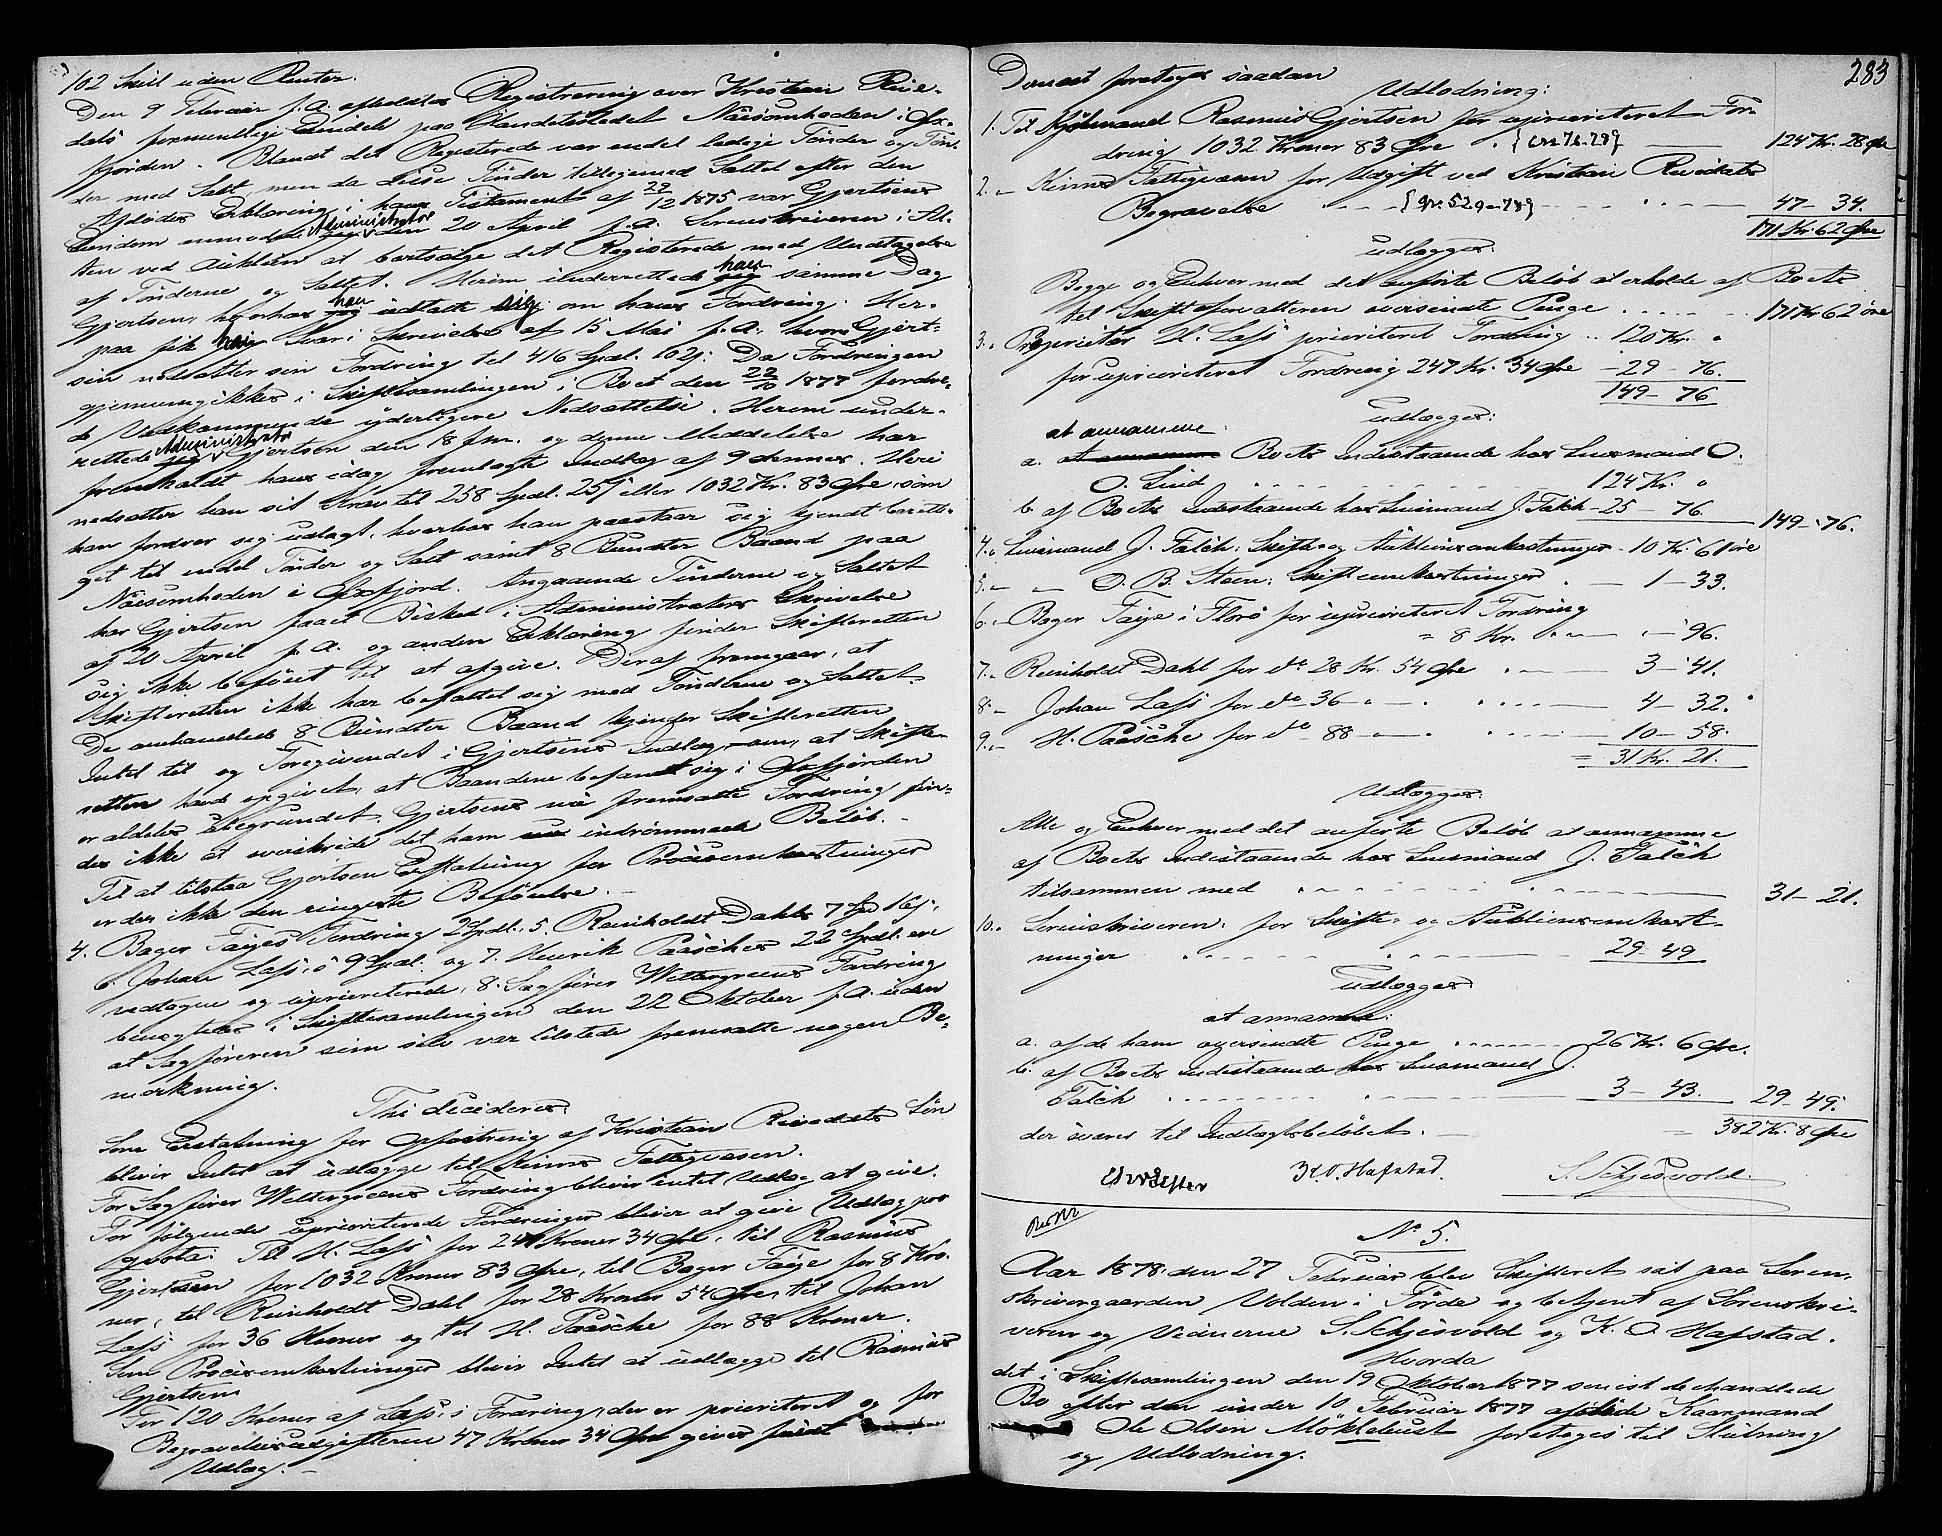 102 Skill uden Renter.
Den 9 Februar f. A. afholdtes Registrering over Kristian Reve-
dals formentlige Eiendele paa Handelsstedet Næsomheden i Ox-
fjorden. Blandt det Registrerede var endel ledige Tønder og Tøn-
der med Salt, men da disse Tønder tilligemed Saltet efter den
Afdødes Erklæring i hans Testament af 29/12 1875 var Gjertsens
Eiendom anmodede Administrator den 20 April f. A. Lensmanden i Al-
ten ved Auktion at bortsælge det Registrerede med Undtagelse
af Tønderne og Saltet. Herom underrettede han samme Dag
Gjertsen, hvorhos han udtalte sig om hans Fordring. Her-
paa fik han Svar i Skrivelse af 15 Mai f. A. hvori Gjert-
sen nedsatter sin Fordring til 416 Spdl. 102 s: Da Fordringen
gjennemgikkes i Skiftesamlingen i Boet den 22/10 1877 fordre-
de Vedkommende yderligere Nedsættelse. Herom under-
rettede Administrator Gjertsen den 18 f.m. og denne Meddelelse har
fremkaldt hans idag fremlagte Indlæg af 9 dennes. Heri
nedsatter han sit Krav til 258 Spdl. 25 s eller 1032 Kr. 83 Øre, som
han fordrer sig udlagt, hvorhos han paastaar sig kjendt beretti-
get til endel Tønder og Salt samt 8 Bundter Baand paa
Næsomheden i Oxfjord. Angaaende Tønderne og Saltet
har Gjertsen faaet Besked i Administrators Skrivelse
af 20 April f. A. og anden Erklæring finder Skifteretten
sig ikke beføiet til at afgive. Deraf fremgaar, at
Skifteretten ikke har befattet sig med Tønderne og Saltet.
De omhandlede 8 Bundter Baand kjender Skifteretten
Intet til og Foregivendet i Gjertsens Indlæg om, at Skifte-
retten havd opgivet, at Baandene befandt sig i Oxfjorden
er aldeles ubegrundet. Gjertsens nu fremsatte Fordring fin-
des ikke at overskride det ham indrømmede Beløb.
Til at tilstaa Gjertsen Erstatning for Procesomkostninger
er der ikke den ringeste Beføielse.
4. Bager Fayes Fordring 2 Spdl. 5. Reinholdt Dahls 7 Spd 16 s,
6. Johan Lassˢ 9 Spdl. og 7. Henrik Paasches 22 Spdl. ere
vedtagne og uprioriterede, 8. Sagfører Wettergreens Fordring
benegtedes i Skiftesamlingen den 22 Oktober f. A. uden
at Sagføreren som selv var tilstede fremsatte nogen Be-
mærkning.
Thi decideres:
Som Erstatning for Opfostring af Kristian Revedals Søn
bliver Intet at udlægge til Kinns Fattigvæsen.
For Sagfører Wettergreens Fordring bliver intet Udlæg at give.
For følgende uprioriterede Fordringer bliver at give Udlæg pro
qvota: Til H. Lass for 247 Kroner 34 Øre, til Rasmus
Gjertsen for 1032 Kroner 83 Øre, til Bager Faye for 8 Kro-
ner, til Reinholdt Dahl for 28 Kroner 54 Øre, til Johan
Lass for 36 Kroner og til H. Paasche for 88 Kroner.
Som Procesomkostninger bliver Intet at udlægge til Rasmus
Gjertsen
For 120 Kroner af Lass's Fordring, der er prioriteret og for
Begravelsesudgifterne 47 Kroner 34 Øre gives fuldt
Udlæg.
283
Derefter foretoges saadan
Udlodning:
1. Til Kjøbmand Rasmus Gjertsen for uprioriteret For-
dring 1032 Kroner 83 Øre . 124 Kr. 28 Øre
2. " Kinns Fattigvæsen for Udgift ved Kristian Revedals
Begravelse 47 - 34.
171 Kr. 62 Øre
udlægges:
Begge og Enhver med det anførte Beløb at erholde af Boets
til Skifteforvalteren oversendte Penge . . . . 171 Kr 62 øre
3. " Proprietær H. Lass prioriteret Fordring . . 120 Kr. "
for uprioriteret Fordring 247 Kr. 34 Øre - 29 - 76.
149 - 76
udlægges:
at annamme
a. Boets Indestaaende hos Lensmand O.
O. Lind . . . . 124 Kr. "
b. af Boets Indestaaende hos Lensmand J. Falch - 25 - 76. 149 - 76.
4. " Lensmand J. Falch: Skifte- og Auktionsomkostninger - 10 Kr. 61 øre
5. " " O. B. Steen: Skifteomkostninger . - 1 - 33.
6. " Bager Faye i Florø for uprioriteret Fordring
= 8 Kr. " - " - 96.
7. " Reinholdt Dahl for do 28 Kr. 54 Øre . - 3 - 41.
8. " Johan Lass for do 36 - " - . . . - 4 - 32.
9. " H. Paasche for do 88 - " - . . . - 10 - 58.
= 31 Kr. 21.
Udlægges:
Alle og Enhver med det anførte Beløb at annamme
af Boets Indestaaende hos Lensmand J. Falch
tilsammen med . . . . 31 - 21.
10. " Sorenskriveren: for Skifte- og Auktionsomkost-
ninger . . . . 29 - 49
udlægges
at annamme:
a. af de ham oversendte Penge . . . . 26 Kr. 6 Øre.
b. af Boets Indestaaende hos Lensmand J.
Falch . . . . 3 - 43. 29 - 49.
der svarer til Indlægtsbeløbet. - = 382 Kr. 8 Øre
K. O. Hafstad. S. Schjesvold.
No 5.
Aar 1878 den 27 Februar blev Skifteret sat paa Soren-
skrivergaarden Volden i Førde og betjent af Sorenskri-
veren og Vidnerne S. Schjesvold og K. O. Hafstad.
Hvorda
det i Skiftesamlingen den 19 Oktober 1877 senest behandlede
Bo efter den under 10 Februar 1877 afdøde Kaarmand
Ole Olsen Møklebust foretoges til Slutning
og Udlodning.